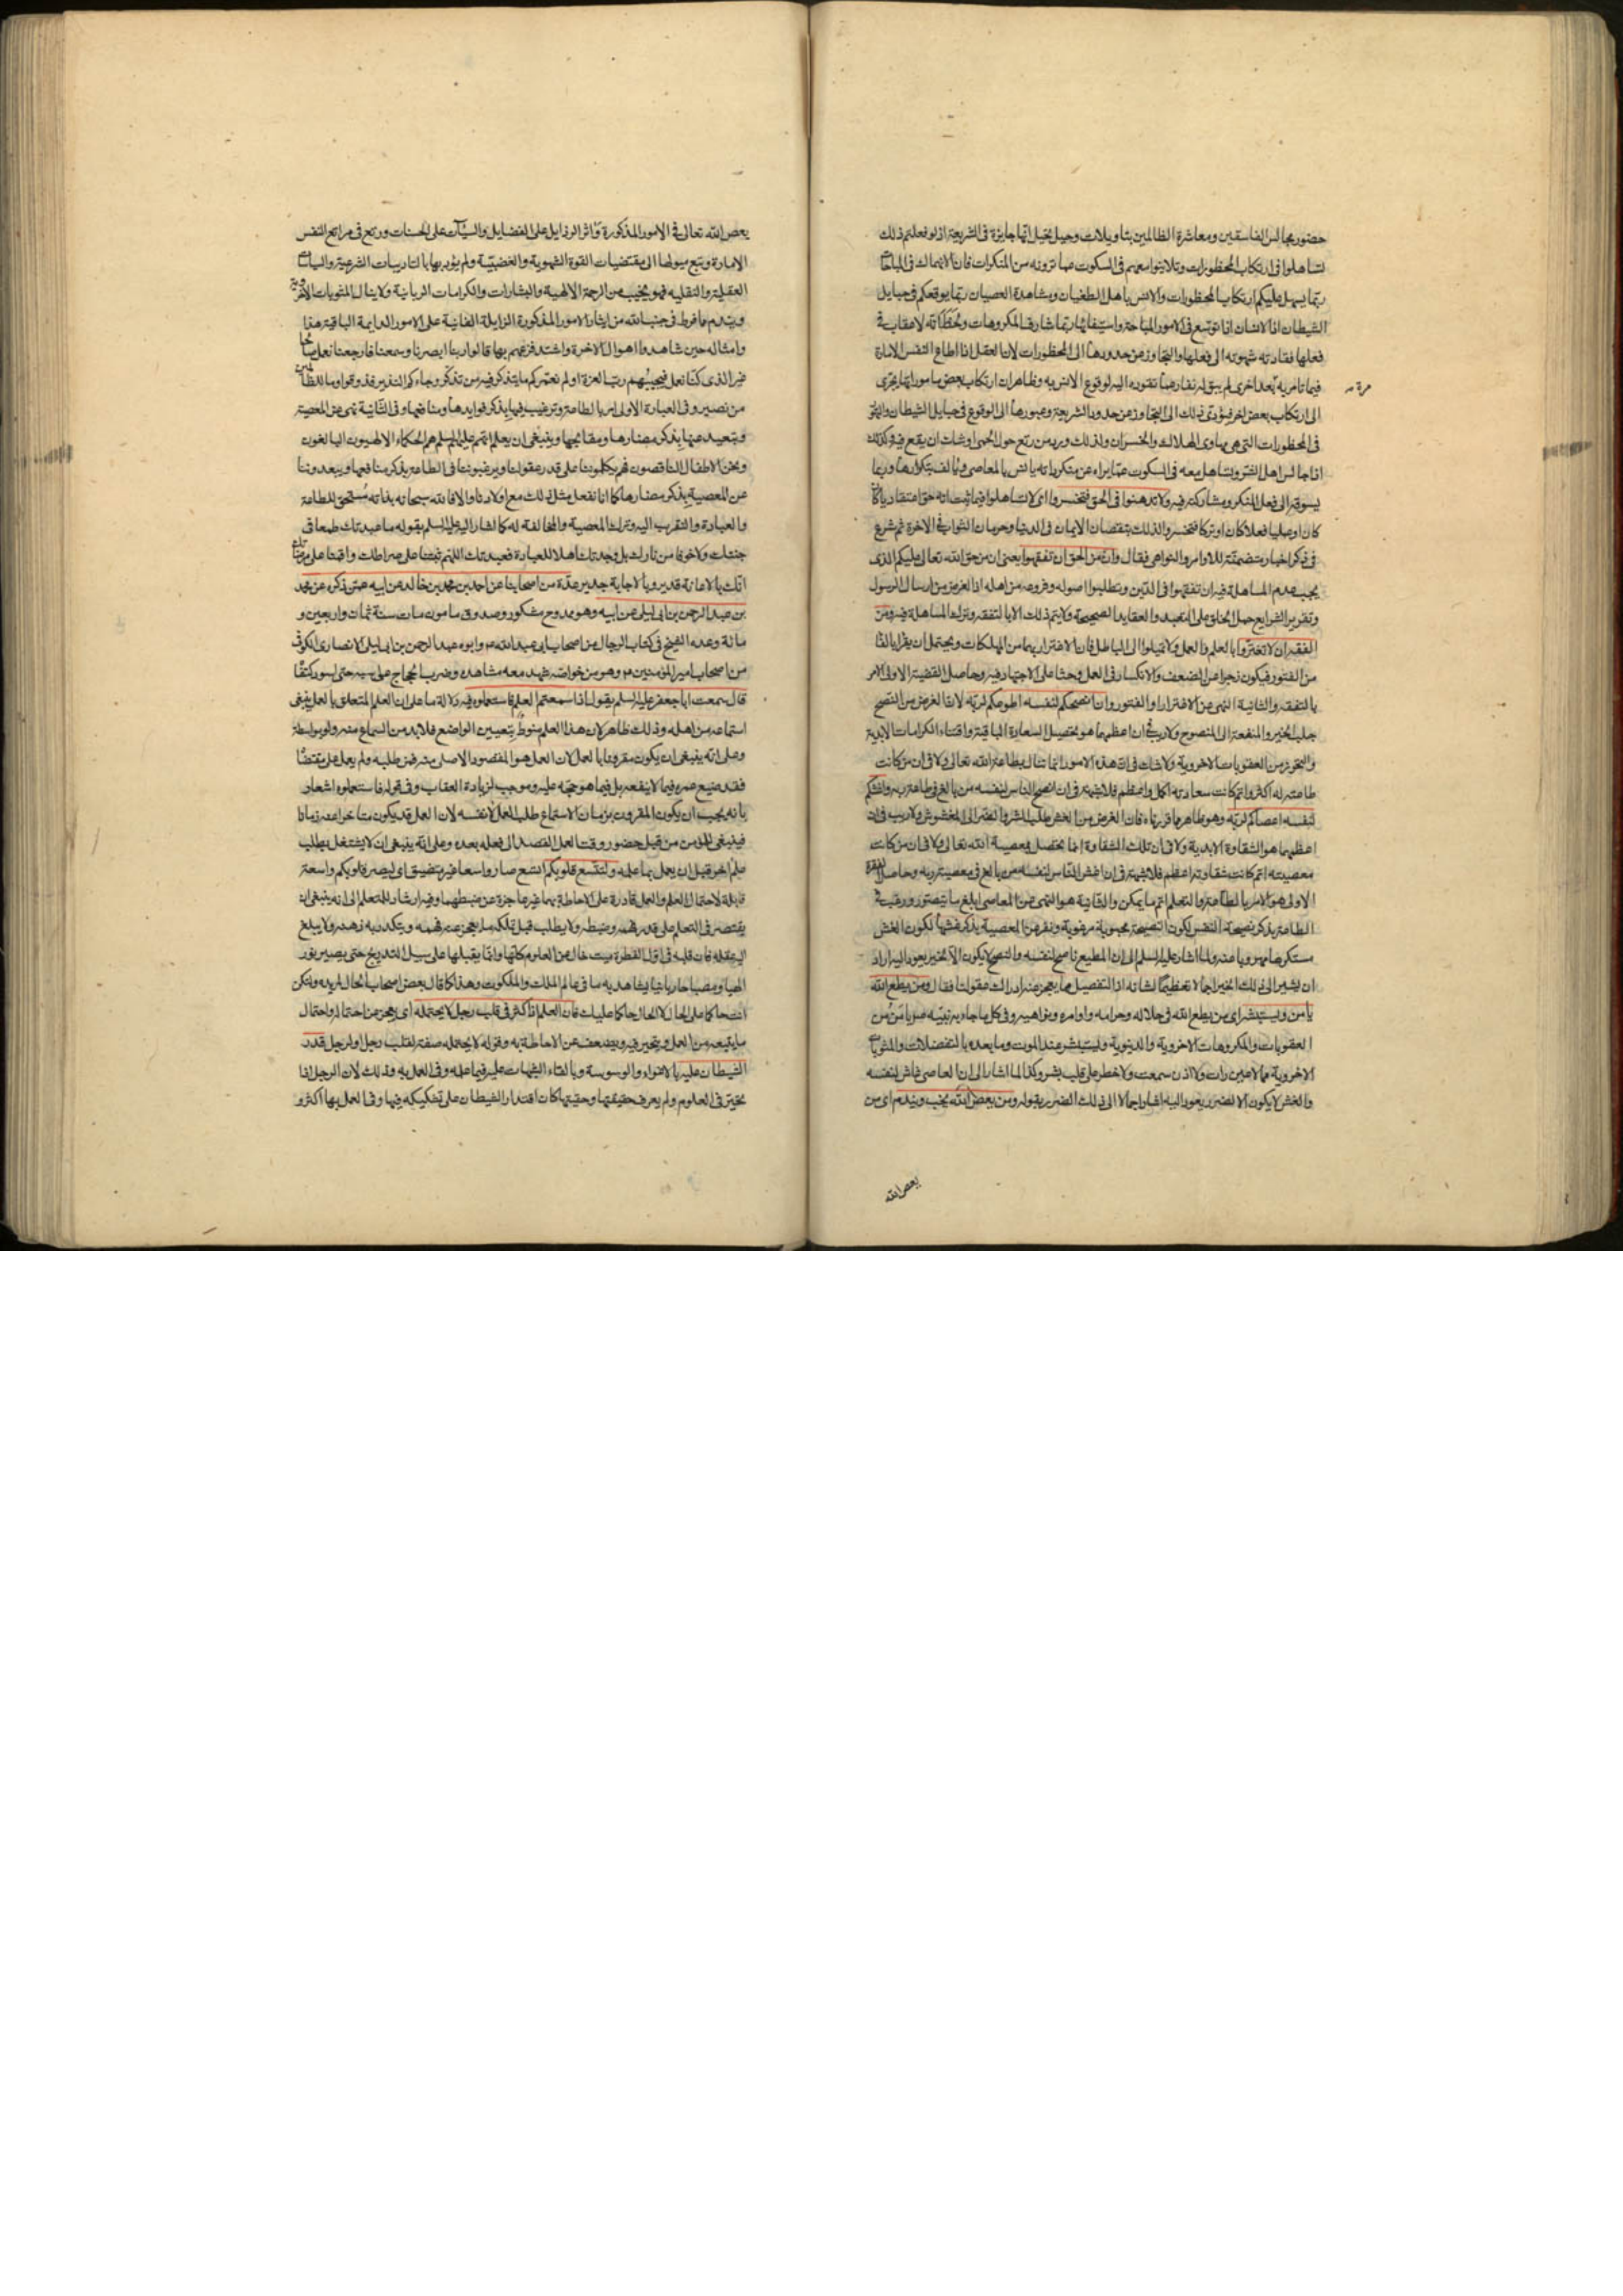 حضور مجالس الفاسقين ومعاشرة الظالمين بتاويلات وحيل يخيل انها جايزة فى الشريعة اذ لو فعلتم ذلك
لتساهلوا فى ارتكاب المحظورات وتلاينوا معهم فى السكوت عما ترونه من المنكرات فان الانهماك فى المباحات
ربما يسهل عليكم ارتكاب المحظورات والانس باهل الطغيان ومشاهدة العصيان ربما يوقعكم فى حبايل
الشيطان اذ الانسان اذا توسع فى الامور المباحة واستيفائها ربما شارف المكروهات ولا عقاب فى
فعلها فقادته شهوته الى فعلها والتجاوز عن حدودها الى المحظورات لان العقل اذا اطاع النفس الامارة
فيما تامر به بعد اخرى لم يبق له نفار عما تقوده اليه لوقوع الانس به وظاهر ان ارتكاب بعض ماموراتها يجرى
مرة
الى ارتكاب بعض اخر فيؤدى ذلك الى التجاوز عن حدود الشريعة وعبورها الى الوقوع فى حبايل الشيطان والتهور
فى المحظورات التى هى مهاوى الهلاك والخسران ولذلك ورد من رتع حول الحمى اوشك ان يقع فيه وكذلك
اذا جالس اهل الشر وتساهل معه فى السكوت عما يراه من منكراته يانس بالمعاصى ويالف بتكرارها وربما
يسوقه الى فعل المنكر ومشاركته فيه ولا تدهنوا فى الحق فتخسروا اى لا تساهلوا فيما ثبت انه حق اعتقاديا
كان او عمليا فعلا كان او تركا فتخسروا لذلك بنقصان الايمان فى الدنيا وحرمان الثواب فى الاخرة ثم شرع
فى ذكر اخبار متضمنة للاوامر والنواهى فقال وان من الحق ان تفقهوا يعنى ان من حق الله تعالى عليكم الذى
يجب عدم المساهلة فيه ان تفقهوا فى الدين وتطلبوا اصوله وفروعه من اهله اذ الغرض من ارسال الرسول
وتقرير الشرايع حمل الخلق على التعبد والعقايد الصحيحة ولا يتم ذلك الا بالتفقه وترك المساهلة فيه ومن
الفقه ان لا تغتروا بالعلم والعمل ولا تميلوا الى الباطل فان الاغترار بهما من المهلكات ويحتمل ان يقرا بالفا
من الفتور فيكون زجرا عن الضعف والانكسار فى العمل وحثا على الاجتهاد فيه وحاصل القضية الاولى الامر
بالتفقه والثانية النهى عن الاغترار او الفتور وان انصحكم لنفسه اطوعكم لربه لان الغرض من النصح
جلب الخير والمنفعة الى المنصوح ولا ريب فى ان اعظمهما هو تحصيل السعادة الباقية واقتناء الكرامات الابدية
والتحرز من العقوبات الاخروية ولا شك فى ان هذه الامور انما تنال بطاعة الله تعالى ولا فى ان من كانت
طاعته له اكثر واتم كانت سعادته اكمل واعظم فلا شبهة فى ان انصح الناس لنفسه من بالغ فى طاعة ربه واغشكم
لنفسه اعصاكم لربه وهو ظاهر مما قررناه فان الغرض من الغش طلب الشر والضر الى المغشوش ولا ريب فى ان
اعظمهما هو الشقاوة الابدية ولا فى ان تلك الشقاوة انما تحصل بمعصية الله تعالى ولا فى ان من كانت
معصيته اتم كانت شقاوته اعظم فلا شبهة فى ان اغش الناس لنفسه من بالغ فى معصية ربه وحاصل الفقرة
الاولى هو الامر بالطاعة والتعلم اتم ما يمكن والثانية هو النهى عن المعاصى ابلغ ما يتصور ورغب فى
الطاعة بذكر نصيحة النفس لكون النصيحة محبوبة مرغوبة ونفر عن المعصية بذكر غشها لكون الغش
مستكرها مهروبا عنه ولما اشار عليه السلم الى ان المطيع ناصح لنفسه والنصح لا يكون الا لخير يعود اليه اراد
ان يشير الى ذلك الخير اجمالا تعظيما لشانه اذ التفصيل مما يعجز عنه ادراك عقولنا فقال ومن يطع الله
يامن ويستبشر اى من يطع الله فى حلاله وحرامه واوامره ونواهيه وفى كل ما جاء به نبيه ص يامن من
العقوبات والمكروهات الاخروية والدنيوية ويستبشر عند الموت وما بعده بالتفضلات والمثوبات
الاخروية مما لا عين رات ولا اذن سمعت ولا خطر على قلب بشر وكذا لما اشار الى ان العاصى غاش لنفسه
والغش لا يكون الا لضرر يعود اليه اشار اجمالا الى ذلك الضرر بقوله ومن يعص الله يخب ويندم اى من
يعص الله
يعص الله تعالى فى الامور المذكورة واثر الرذايل على الفضايل والسيآت على الحسنات ورتع فى مراتع النفس
الامارة وتبع ميولها الى مقتضيات القوة الشهوية والغضبية ولم يؤدبها بالتاديبات الشرعية والسياسات
العقلية والنقليه فهو يخيب من الرحمة الالهية والبشارات والكرامات الربانية ولا ينال المثوبات الاخروية
ويندم ما فرط فى جنب الله من ايثار الامور المذكورة الزايلة الفانية على الامور الدايمة الباقية هذا
وامثاله حين شاهدوا اهوال الاخرة واشتد فزعهم بها قالوا ربنا ابصرنا وسمعنا فارجعنا نعمل صالحا
غير الذى كنا نعمل فيجيبهم رب العزة اولم نعمركم ما يتذكر فيه من تذكر وجاءكم النذير فذوقوا وما للظالمين
من نصير وفى العبارة الاولى امر بالطاعة وترغيب فيها بذكر فوايدها ومنافعها وفى الثانية نهى عن المعصية
وتبعيد عنها بذكر مضارها ومقابحها وينبغى ان يعلم انهم عليهم السلم هم الحكماء الالهيون البالغون
ونحن الاطفال الناقصون فهم يكلموننا على قدر عقولنا ويرغبوننا فى الطاعة بذكر منافعها ويبعدوننا
عن المعصية بذكر مضارها كما انا نفعل مثل ذلك مع اولادنا والا فالله سبحانه بذاته مستحق للطاعة
والعبادة والتقرب اليه وترك المعصية والمخالفة له كما اشار اليه عليه السلم بقوله ما عبدتك طمعا فى
جنتك ولا خوفا من نارك بل وجدتك اهلا للعبادة فعبدتك اللهم ثبتنا على صراطك واقمنا على مرضاتك
انك بالاعانة قدير وبالاجابة جدير عدة من اصحابنا عن احمد بن محمد بن خالد عن ابيه عمن ذكره عن محمد
بن عبد الرحمن بن ابى ليلى عن ابيه وهو ممدوح مشكور وصدوق مامون مات سنة ثمان واربعين و
مائة وعده الشيخ فى كتاب الرجال من اصحاب ابى عبد الله ع وابوه عبد الرحمن بن ابى ليلى الانصارى الكوفى
من اصحاب امير المؤمنين ع وهو من خواصه شهد معه مشاهده وضربه الحجاج على سبه حتى اسود كتفاه
قال سمعت ابا جعفر عليه السلم يقول اذا سمعتم العلم فاستعملوه فيه دلالة ما على ان العلم المتعلق بالعمل ينبغى
استماعه من اهله وذلك ظاهر لان هذا العلم منوط بتعيين الواضع فلا بد من السماع منه ولو بواسطة
وعلى انه ينبغى ان يكون مقرونا بالعمل لان العمل هو المقصود الاصلى منه فمن طلبه ولم يعمل على مقتضاه
فقد ضيع عمره فيما لا ينفعه بل فيما هو حجة عليه وموجب لزيادة العقاب وفى قوله فاستعملوه اشعار
بانه يجب ان يكون المقرون بزمان الاستماع طلب العمل لا نفسه لان العمل قد يكون متاخرا عنه زمانا
فينبغى للمؤمن من قبل حضور وقت العمل القصد الى فعله بعده وعلى انه ينبغى ان لا يشتغل بطلب
علم اخر قبل ان يعمل بما علمه ولتتسع قلوبكم اتسع صار واسعا غير متضيق اى ليصر قلوبكم واسعة
قابلة لاحتمال العلم والعمل قادرة على الاحاطة بهما غير عاجزة عن ضبطهما وفيه ارشاد للمتعلم الى انه ينبغى ان
يقتصر فى التعلم على قدر فهمه وضبطه ولا يطلب قبل تملكه ما يعجز عنه فهمه ويتكدر به ذهنه ولا يبلغ
اليه عقله فان قلبه فى اول الفطرة بيت خال عن العلوم كلها وانما يقبلها على سبيل التدريج حتى يصير نور
الهيا ومصباحا ربانيا يشاهد به ما فى عالم الملك والملكوت وهذا كما قال بعض اصحاب الحال لمريده ولتكن
انت حاكما على الحال لا الحال حاكما عليك فان العلم اذا كثر فى قلب رجل لا يحتمله اى يعجز عن احتماله واحتمال
ما يتبعه من العمل ويتحير فيه ويضعف عن الاحاطة به وقوله لا يحتمله صفة لقلب رجل او لرجل قدر
الشيطان عليه بالاغواء والوسوسة وبالقاء الشبهات عليه فيما علمه وفى العمل به وذلك لان الرجل اذا
تحير فى العلوم ولم يعرف حقيقتها وحقيتها كان اقتدار الشيطان على تشكيكه فيها وفى العمل بها اكثر و